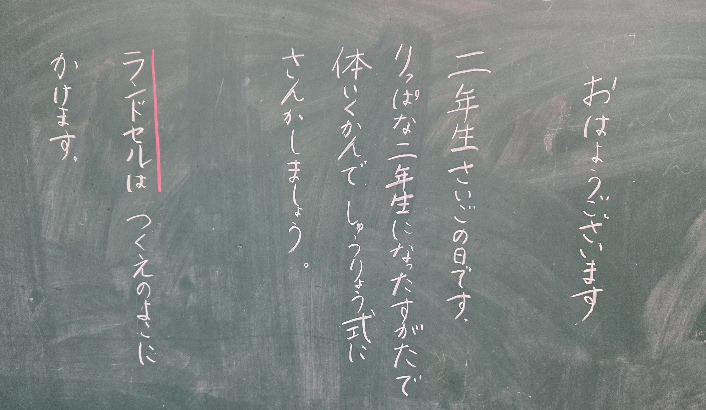 おはようございます
二年生さいごの日です。
りっぱな二年生になったすがたで
体いくかんでしゅうりょう式に
さんかしましょう。
ランドセルは つくえのよこに
かけます。